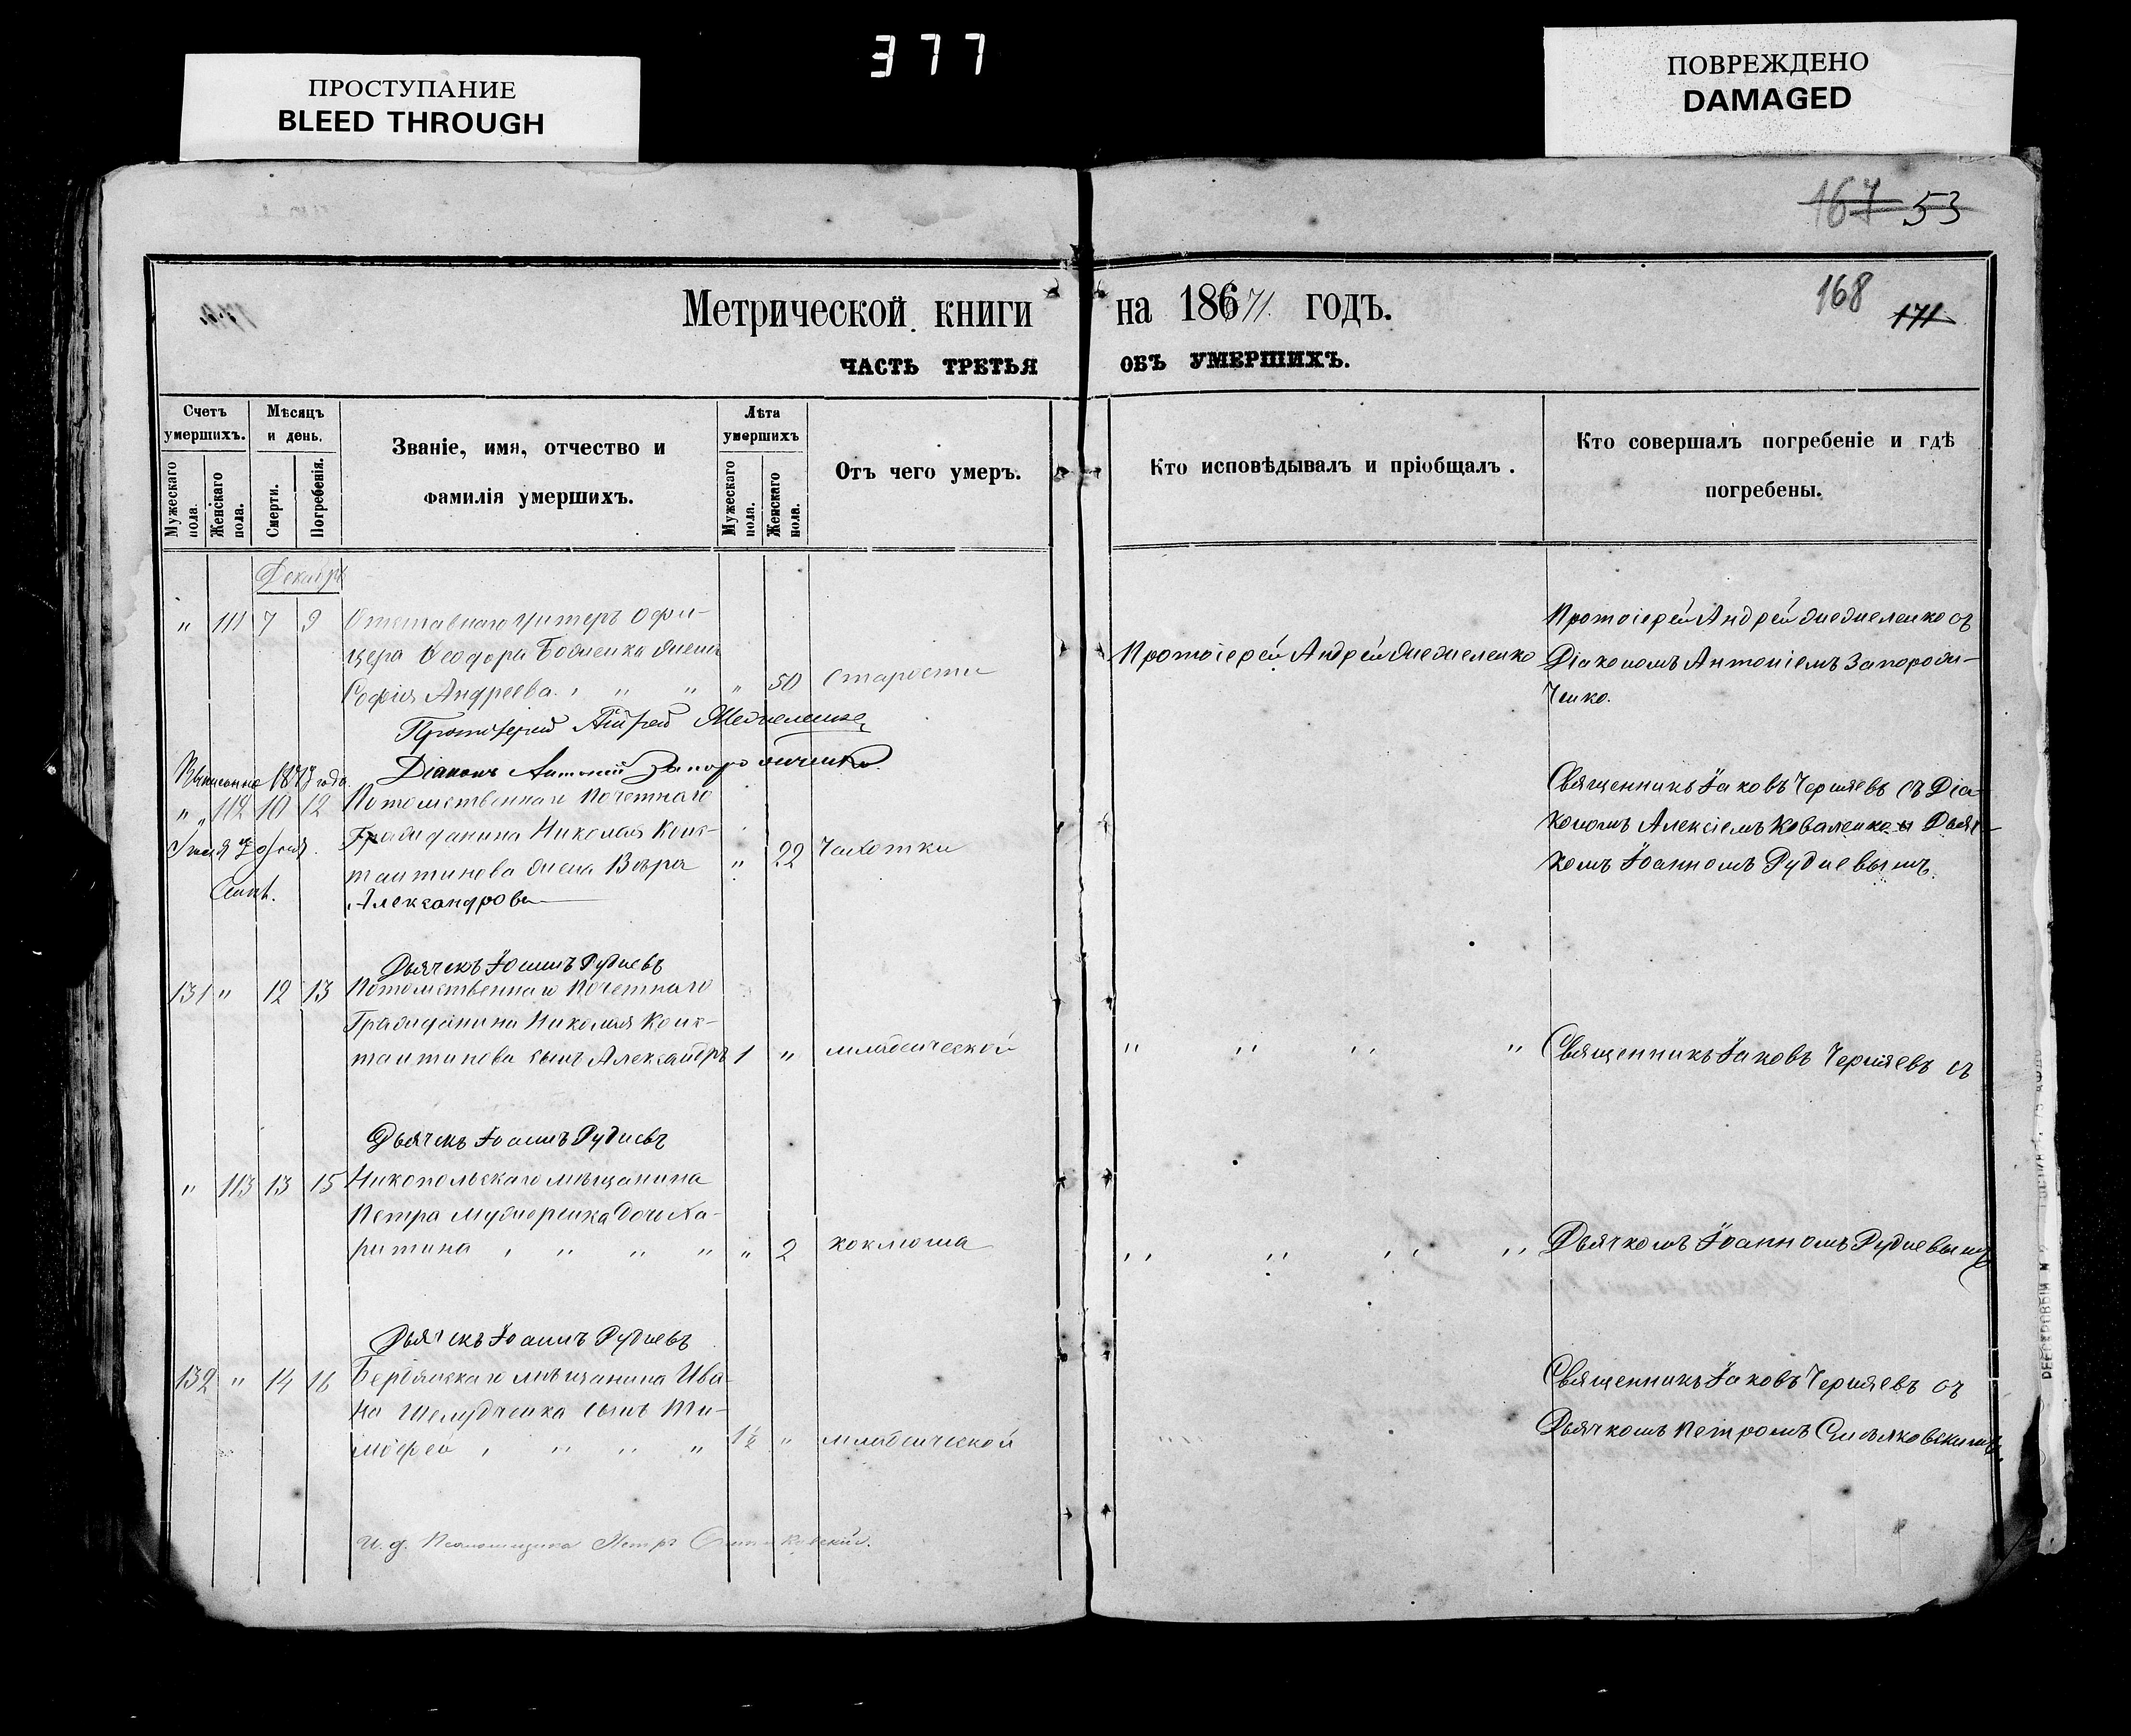 377
ПРОСТУПАНИЕ
BLEED THROUGH
ПОВРЕЖДЕНО
DAMAGED
167 53
168
171
Метрической книги на 18671 годъ.
ЧАСТЬ ТРЕТЬЯ ОБЪ УМЕРШИХЪ.
Счетъ умершихъ.
Мужескаго пола.
Женскаго пола.
Мѣсяцъ и день.
Смерти.
Погребенія.
Званіе, имя, отчество и
фамилія умершихъ.
Лѣта умершихъ
Мужескаго пола.
Женскаго пола.
Отъ чего умеръ.
Кто исповѣдывалъ и пріобщалъ.
Кто совершалъ погребеніе и гдѣ
погребены.
Декабрь
" 111 7 9 Отставнаго Унтеръ Офи-
цера Ѳеодора жена
Софія Андреева " " " " 50 старости
Протоіерей Андрей
Протоіерей Андрей съ
Діакономъ Антоніемъ Запорож-
ченко.
Протоіерей Андрей
Діаконъ Антоній Запорожченко
года
" 112 10 12 Потомственнаго Почетнаго
Гражданина Николая Конс-
тантинова жена Вѣра " 22 Чахотки
Александрова
Священникъ Іаковъ Черняевъ съ Діа-
кономъ Алексіемъ Коваленко и Дьяч-
комъ Іоанномъ Руднѣвымъ.
Дьячекъ Іоаннъ Рудневъ
131 " 12 13 Потомственнаго Почетнаго
Гражданина Николая Конс-
тантинова сынъ Александръ 1 " младенческой
" " " " Священникъ Іаковъ Черняевъ съ
Дьячекъ Іоаннъ Рудневъ
" 113 13 15 Никопольскаго мѣщанина
Петра дочь Ха-
ритина " " " " " 2 коклюша
" " " " Дьячкомъ Іоанномъ Рудневымъ
Дьячекъ Іоаннъ Рудневъ
132 " 14 16 Бердянскаго мѣщанина Ива-
на Шелудченка сынъ Ти-
моѳей " " " " 1½ " младенческой
Священникъ Іаковъ Черняевъ съ
Дьячкомъ Петромъ
И. д. Псаломщика Петръ